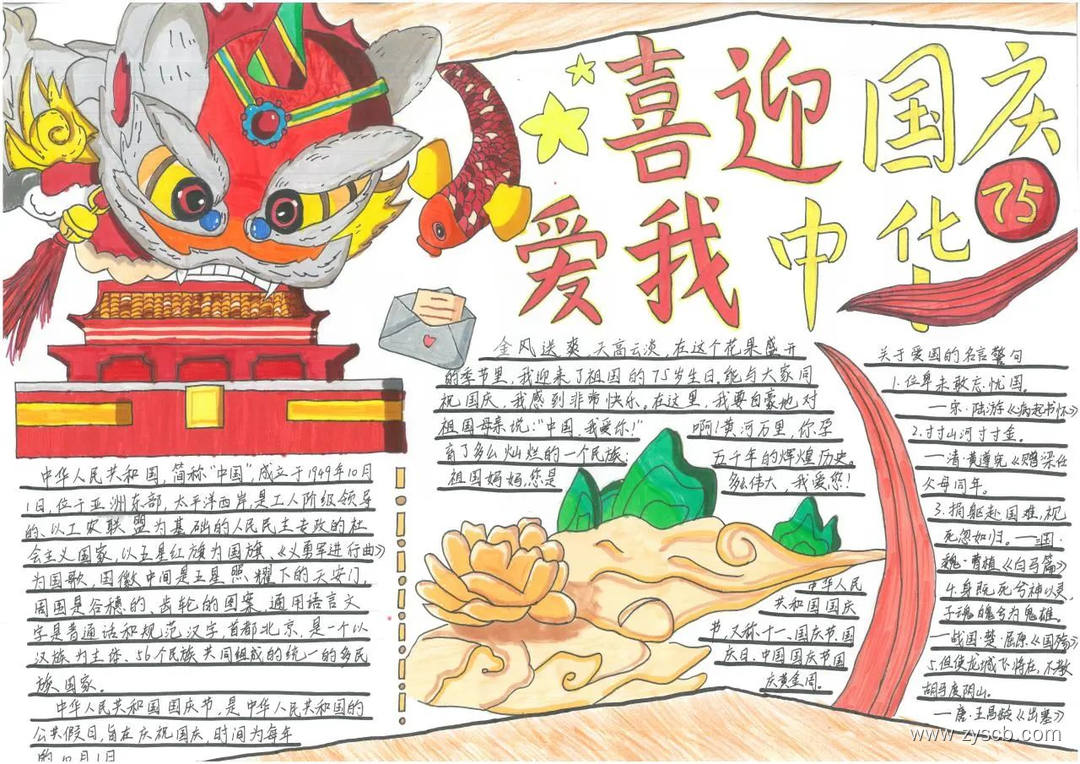 喜迎国庆
75
爱我中华
金风送爽,天高云淡,在这个花果盛开
的季节里,我迎来了祖国的75岁生日。能与大家同
祝国庆,我感到非常快乐。在这里,我要自豪地对
祖国母亲说:“中国,我爱你!” 啊!黄河万里,你孕
育了多么灿烂的一个民族; 五千年的辉煌历史。
祖国妈妈,您是 多么伟大,我爱您!
中华人民共和国,简称“中国”,成立于1949年10月
1日,位于亚洲东部,太平洋西岸,是工人阶级领导
的、以工农联盟为基础的人民民主专政的社
会主义国家,以五星红旗为国旗、《义勇军进行曲》
为国歌,国徽中间是五星照耀下的天安门,
周围是谷穗的、齿轮的图案,通用语言文
字是普通话和规范汉字,首都北京,是一个以
汉族为主体、56个民族共同组成的统一的多民
族、国家。
中华人民共和国国庆节,是中华人民共和国的
公共假日,旨在庆祝国庆,时间为每年
的10月1日
中华人民
共和国国庆
节,又称十一、国庆节、国
庆日、中国国庆节国
庆黄金周。
关于爱国的名言警句
1.位卑未敢忘忧国。
——宋·陆游《病起书怀》
2.寸寸山河寸寸金。
——清·黄遵宪《赠梁任
父母同年。
3.捐躯赴国难,视
死忽如归。——国·
魏·曹植《白马篇》
4.身既死兮神以灵,
子魂魄兮为鬼雄。
——战国·楚·屈原《国殇》
5.但使龙城飞将在,不教
胡马度阴山。
——唐·王昌龄《出塞》
www.zyscb.com